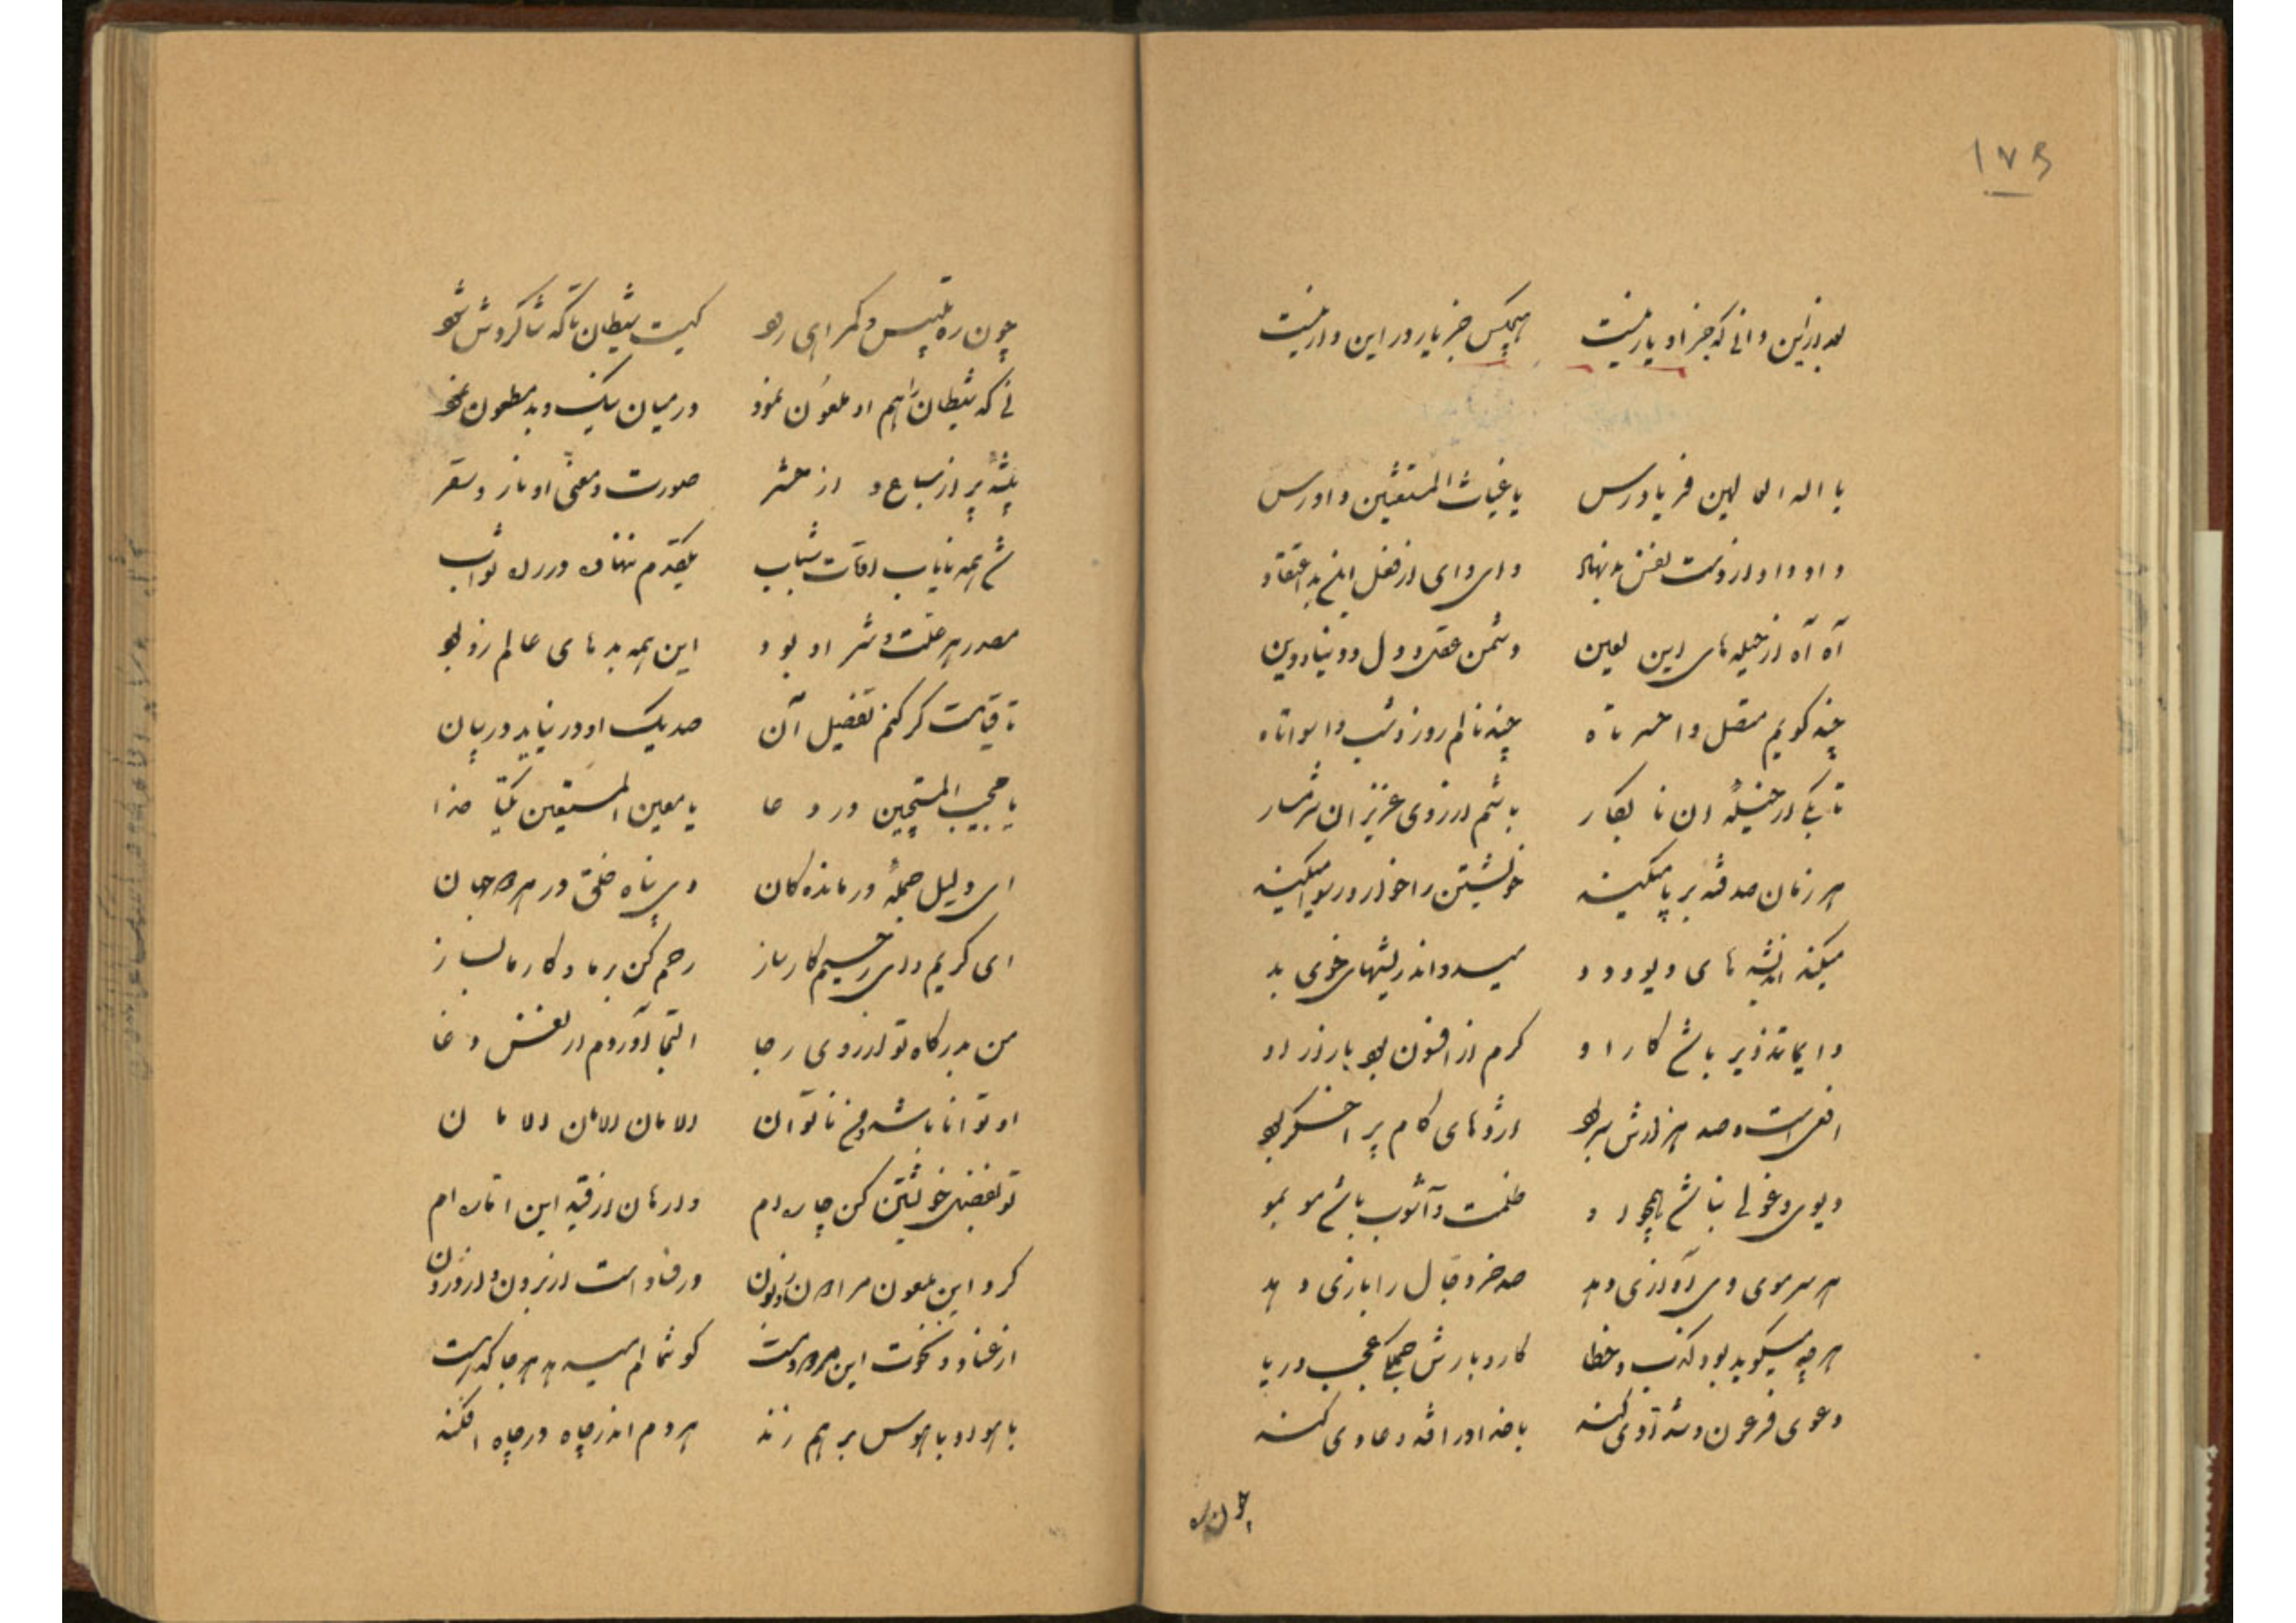 ۱۷۵
بعد ازین دانی که جز او یار نیست هیچکس جز یار در این دار نیست
یا اله العالمین فریادرس یا غیاث المستغثین دادرس
داد داد از دست نفس بد نهاد وای وای از فعل این بد اعتقاد
آه آه از حیله های این لعین دشمن عقل و دل و دنیا و دین
چند کویم متصل واحسرتاه چند نالم روز و شب واسواتاه
تا بکی از حیلهٔ ان نابکار باشم از روی عزیزان شرمسار
هر زمان صد فتنه بر پا میکند خویشتن را خوار و رسوا میکند
میکند اندیشه های دیو و دد میدواند ریشهای خوی بد
دایما تذویر باشد کار او کرم از افسون بود بازار او
افعی است و صد هزارش سر بود اژدهای کام پر اخگر بود
دیو و غولی نباشد همچو او ظلمت و آشوب باشد مو بمو
هر سر موی وی آوازی دهد صد خر دجال را بازی دهد
هر چه میگوید بود کذب و خطا کار و بارش جملکی عجب و ریا
دعوی فرعون و شدادی کند با خدا و راندۀ دعاوی کند
چون ره
چون ره تلبیس و کمراهی رود کیست شیطان تا که شاکردش شود
نی که شیطان را هم او ملعون نمود در میان نیک و بد مطعون نمود
بیشهٔ پر از سباع و از حشر صورت و معنی او نار و سقر
شد همه نایاب اوقات شباب یکقدم ننهاد در راه ثواب
مصدر هر علت و شر او بود این همه بدهای عالم زو بود
تا قیامت کر کنم تفصیل آن صد یک او در نیاید در بیان
یا مجیب المستجیبین در دعا یا معین المستعین یکتا خدا
ای دلیل جملهٔ درمانده کان وی پناه خلق در هر دو جهان
ای کریم و ای رحیم کارساز رحم کن بر ما و کار ما بساز
من بدرکاه تو از روی رجا التجا آوردم از نفس دغا
او توانا باشد و من ناتوان الامان الامان الامان
تو بفضل خویشتن کن چاره ام وارهان از قید این اماره ام
کرد این ملعون مرا خوار و زبون در فتاد است از برون و از درون
از عناد و نخوت این مردود کوشمالم میدهد هر جا که هست
با هوا و با هوس بر هم زند هر دم اندر چاه در چاه افکند